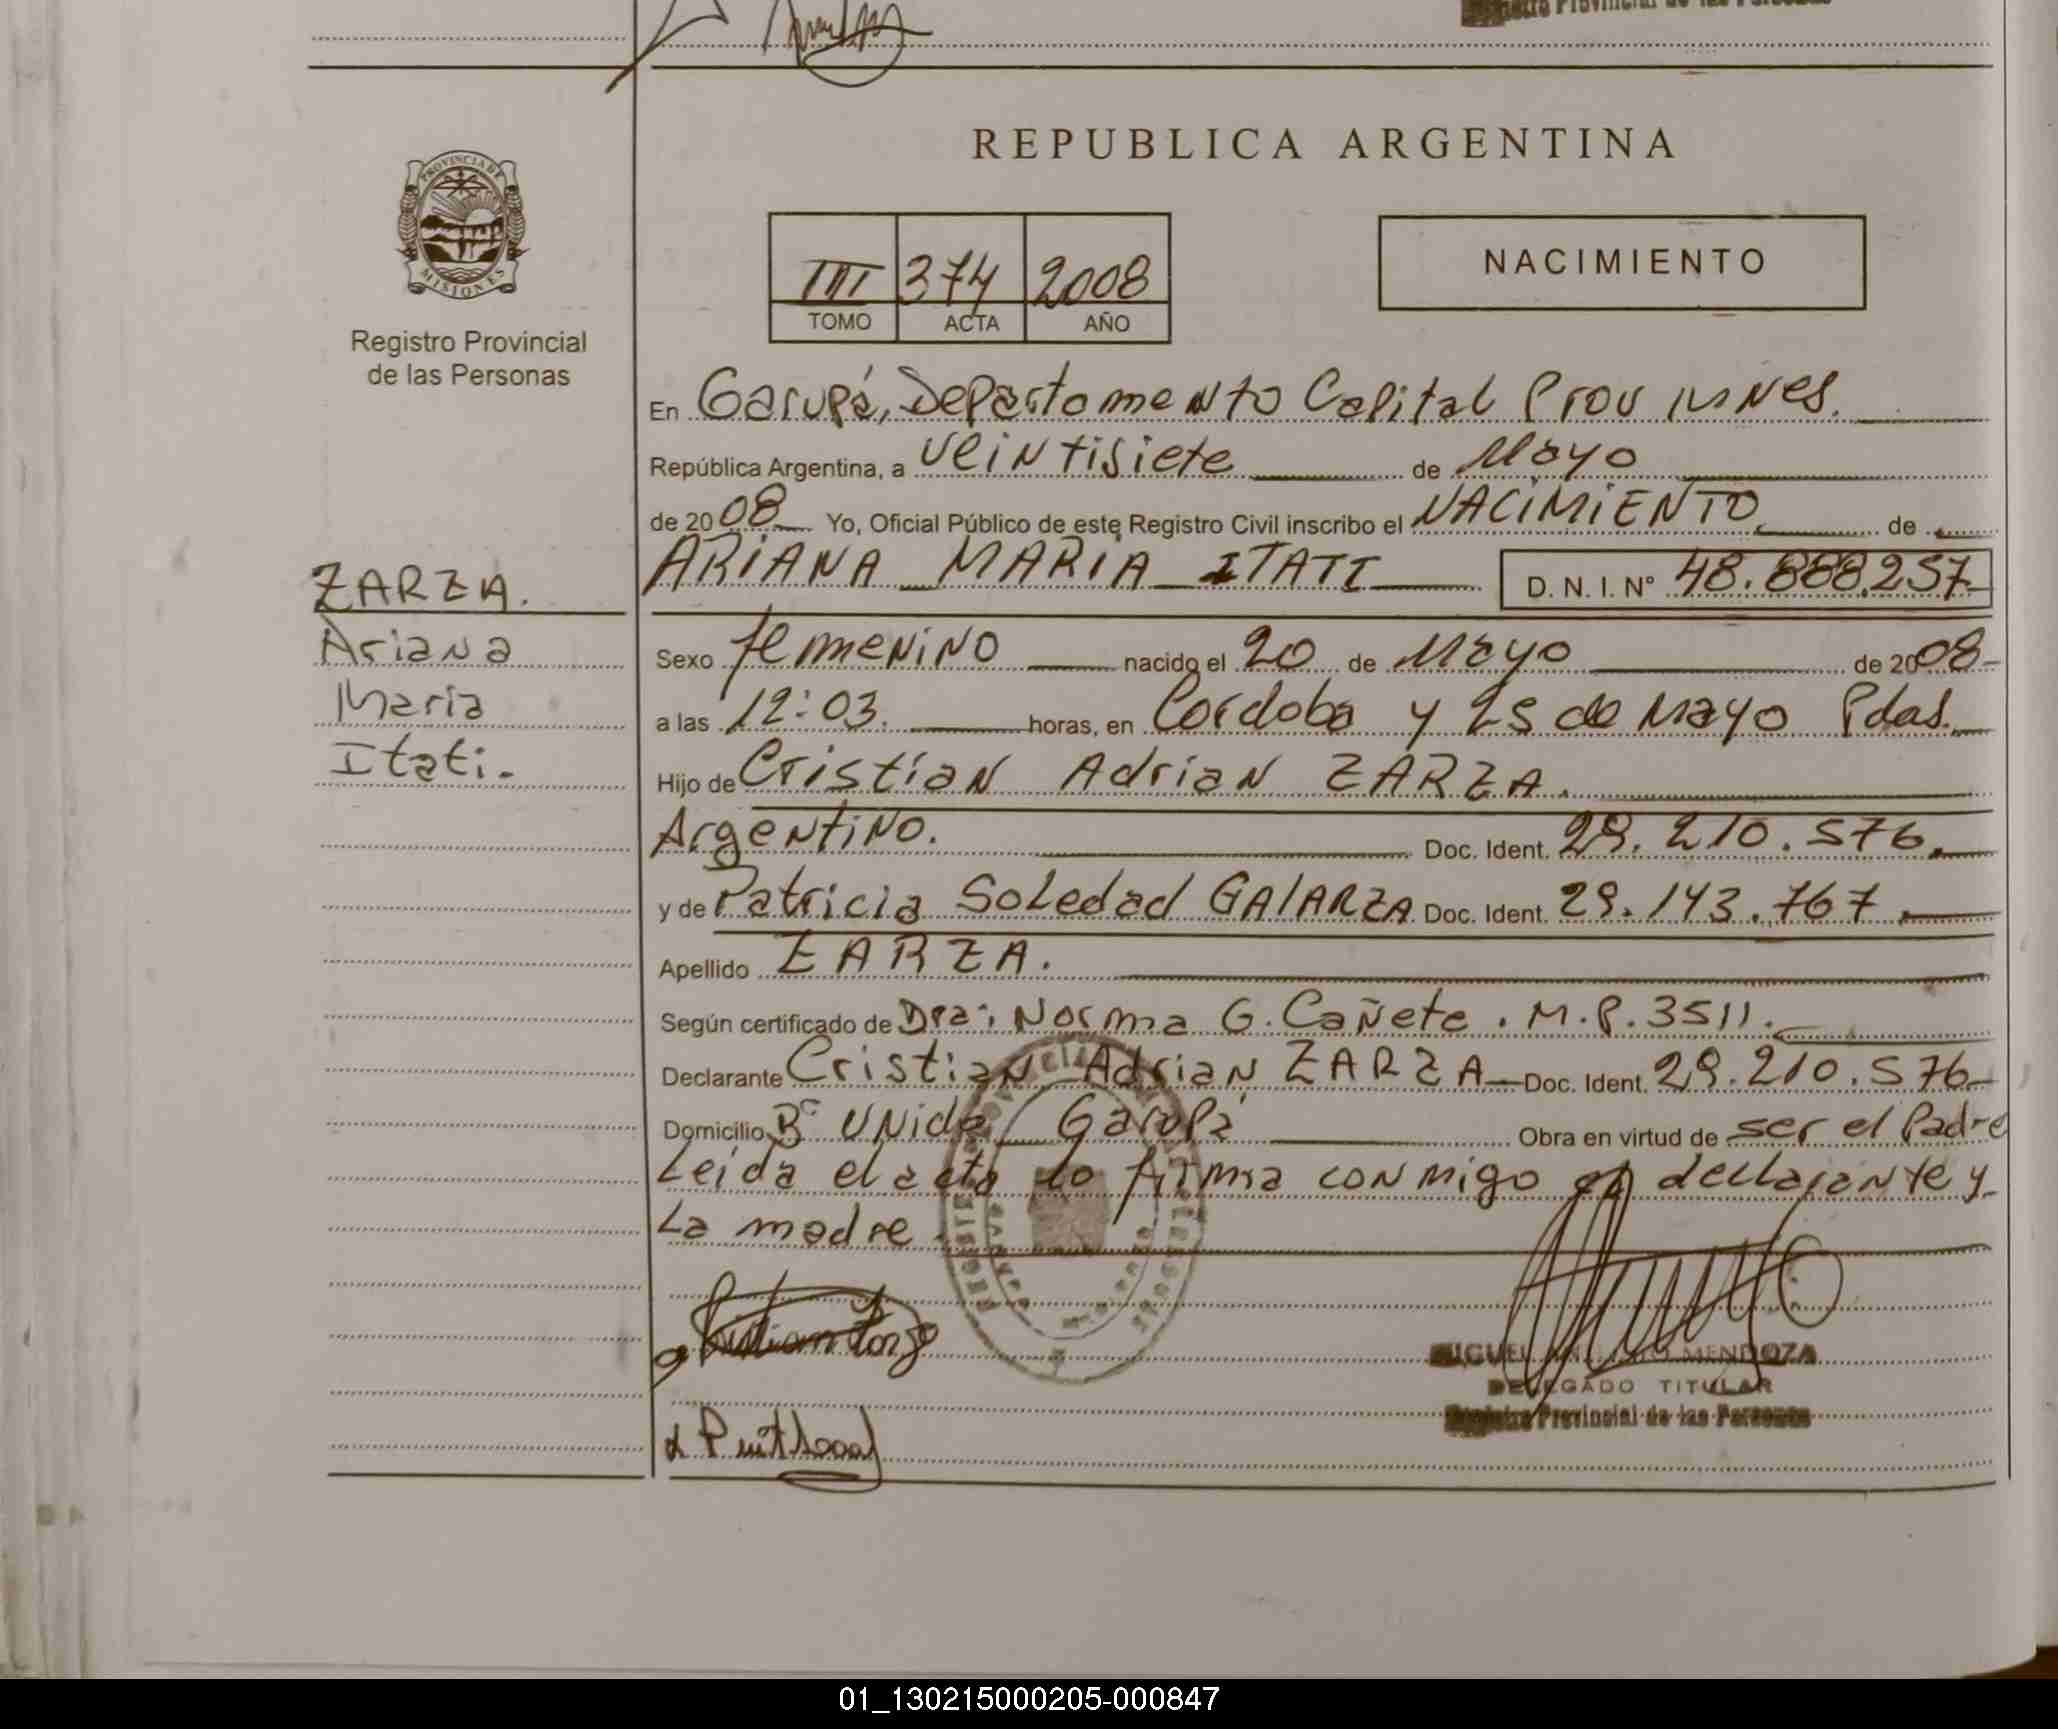 Registro Provincial de las Personas
PROVINCIA DE
MISIONES
Registro Provincial
de las Personas
REPUBLICA ARGENTINA
III 374 2008
TOMO ACTA AÑO
NACIMIENTO
En Garupá, Departamento Capital Prov Mnes.
República Argentina, a veintisiete de Mayo
de 2008 Yo, Oficial Público de este Registro Civil inscribo el NACIMIENTO de
ARIANA MARIA ITATI D. N. I. Nº 48.888.257
ZARZA.
Ariana
Maria
Itati.
Sexo femenino nacido el 20 de Mayo de 2008
a las 12:03. horas, en Cordoba y 25 de Mayo Pdas.
Hijo de Cristian Adrian ZARZA.
Argentino. Doc. Ident. 29.210.576.
y de Patricia Soledad GALARZA Doc. Ident. 29.143.767.
Apellido ZARZA.
Según certificado de Dra: Norma G. Cañete. M.P. 3511.
Declarante Cristian Adrian ZARZA Doc. Ident. 29.210.576
Domicilio Bº Unido Garupá Obra en virtud de ser el Padre
Leida el acta lo firma conmigo el declarante y
La madre.
MIGUEL MENDOZA
DELEGADO TITULAR
Registro Provincial de las Personas
01_130215000205-000847